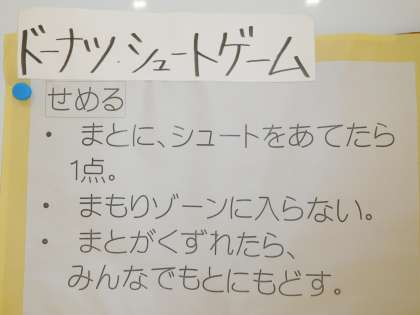 ドーナツシュートゲーム
せめる
・ まとに、シュートをあてたら
1点。
・ まもりゾーンに入らない。
・ まとがくずれたら、
みんなでもとにもどす。